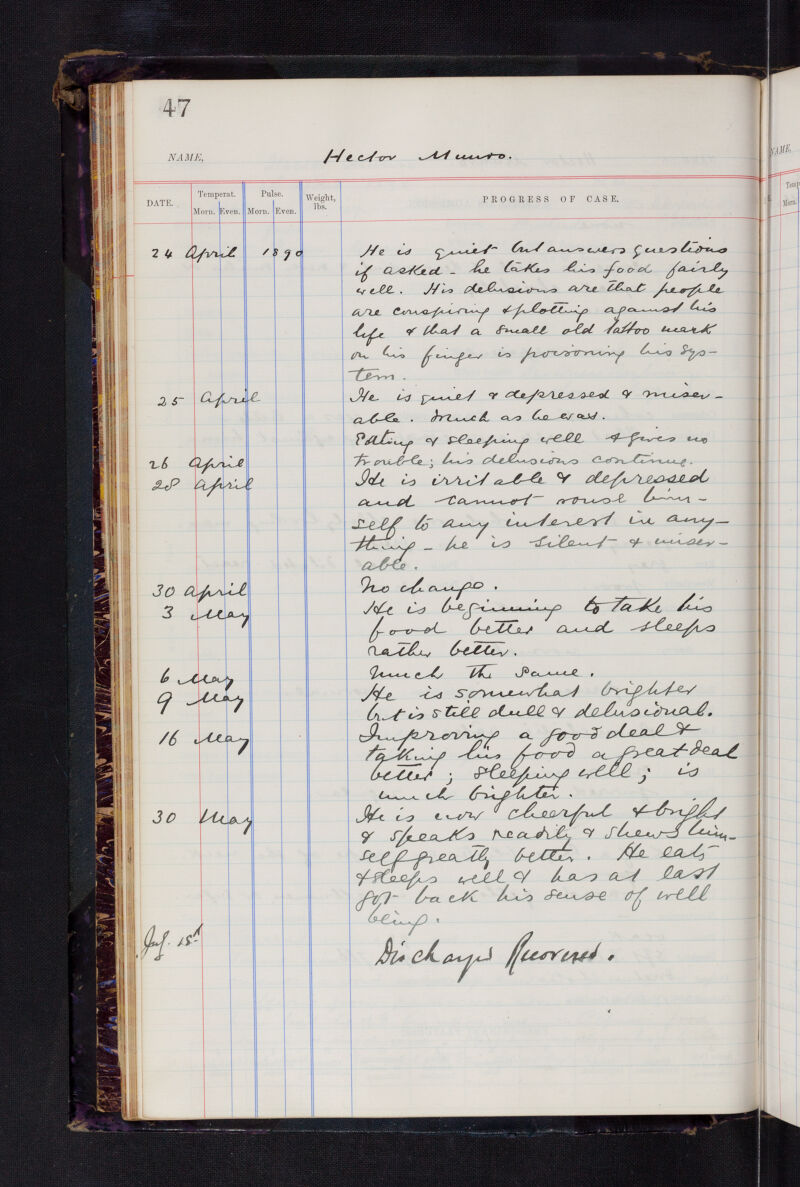 47
NAME, Hector Munro.
DATE. Temperat. Pulse. Weight, lbs. PROGRESS OF CASE.
Morn. Even. Morn. Even.
24 April 1890 He is quiet but answers questions
if asked - he takes his food fairly
well. His delusions are that people
are conspiring & plotting against his
life & that a small old tattoo mark
on his finger is poisoning his sys-
tem.
25 April He is quiet & depressed & miser-
able. Much as he was.
Eating & sleeping well & gives no
26 April trouble; his delusions continue.
28 April He is irritable & depressed
and cannot rouse him-
self to any interest in any-
thing - he is silent & miser-
able.
30 April No change.
3 May He is beginning to take his
food better and sleeps
rather better.
6 May Much the same.
9 May He is somewhat brighter
but is still dull & delusional.
16 May Improving a good deal &
taking his food a great deal
better; sleeping well; is
much brighter.
30 May He is now cheerful & bright
& speaks readily & shews him-
self greatly better. He eats
& sleeps well & has at last
got back his sense of well
being.
15th Discharged Recovered.
NAME.
Temp
Morn.